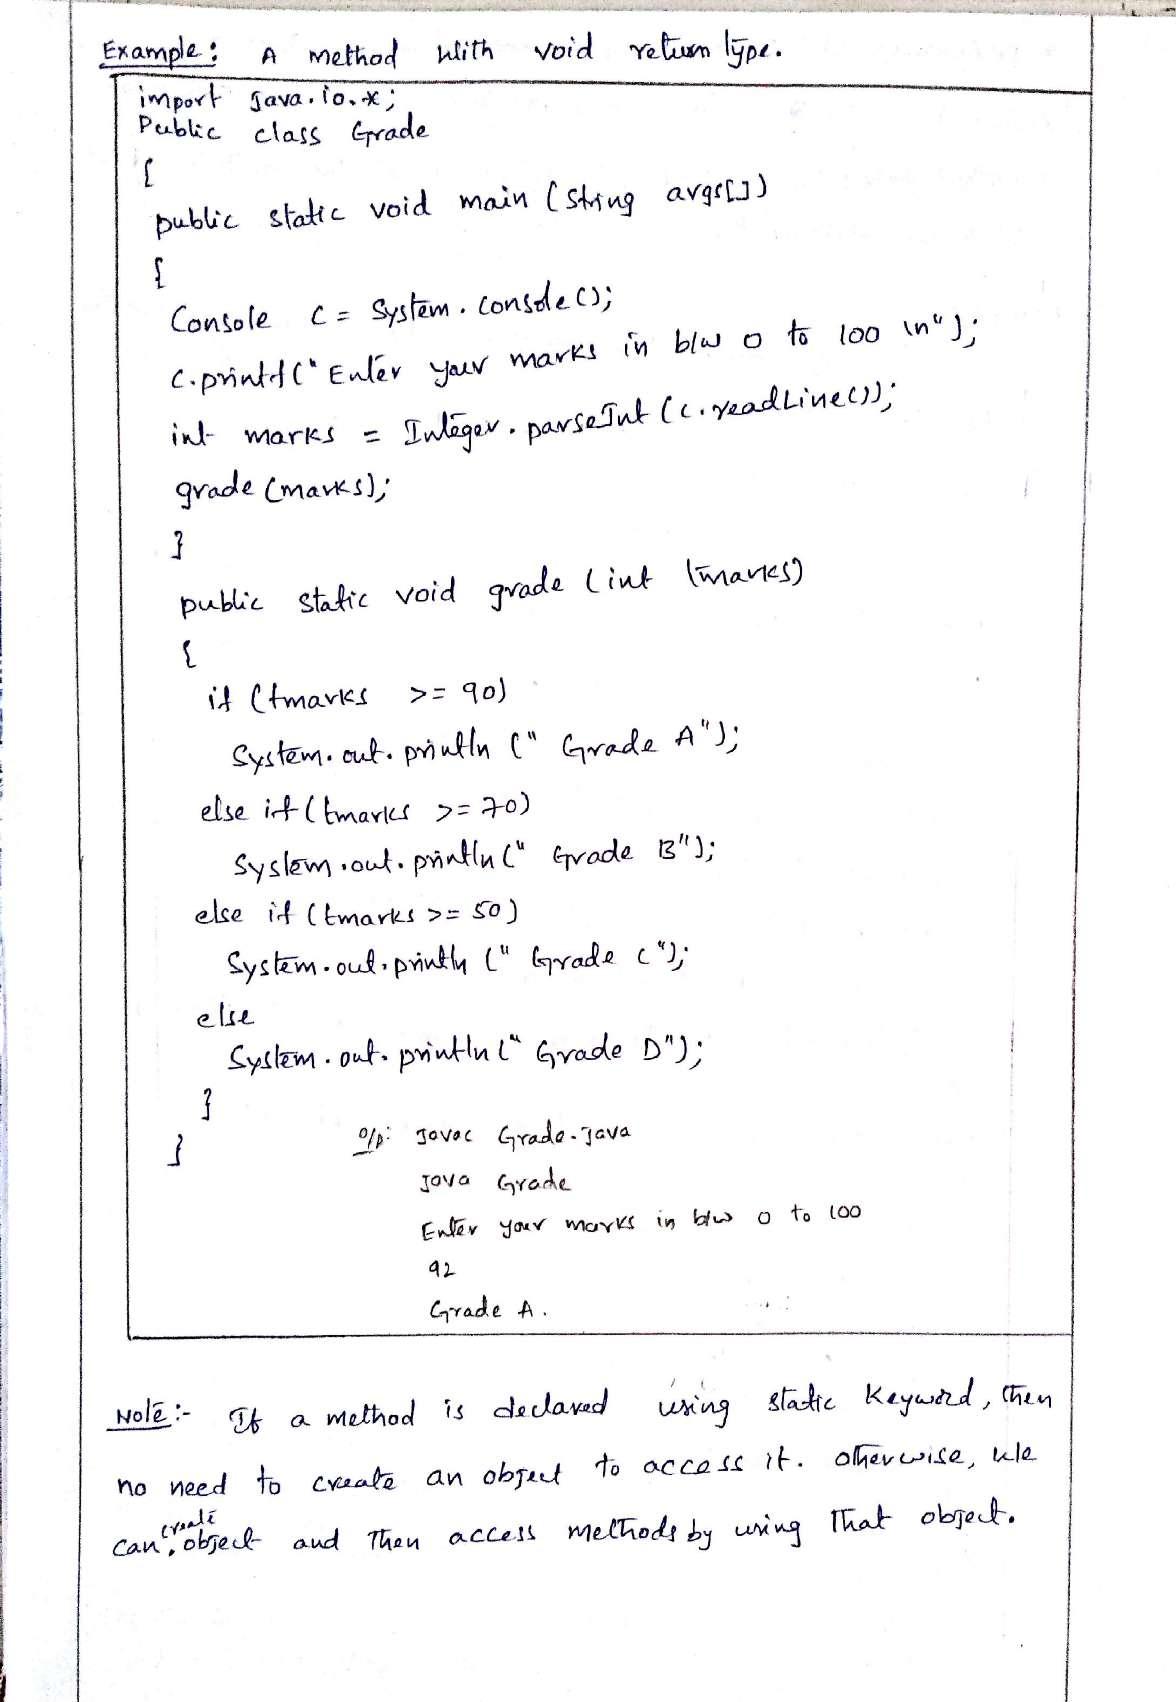 Example: A method with void return type.
import java.io.*;
Public class Grade
{
public static void main (String args[])
{
Console c = System.console();
c.printf(" Enter your marks in b/w 0 to 100 \n");
int marks = Integer.parseInt (c.readLine());
grade (marks);
}
public static void grade (int tmarks)
{
if (tmarks >= 90)
System.out.println (" Grade A");
else if (tmarks >= 70)
System.out.println (" Grade B");
else if (tmarks >= 50)
System.out.println (" Grade C");
else
System.out.println (" Grade D");
}
}
o/p: Javac Grade.java
Java Grade
Enter your marks in b/w 0 to 100
92
Grade A.
Note:- If a method is declared using static keyword, then
no need to create an object to access it. otherwise, we
can create object and then access methods by using that object.